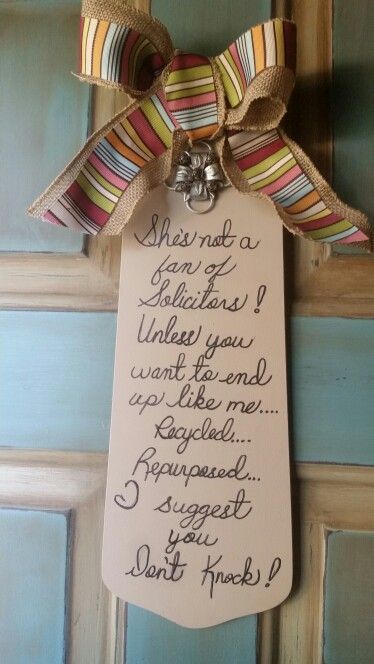 She's not a
fan of
Solicitors!
Unless you
want to end
up like me....
Recycled....
Repurposed...
I suggest
you
Don't Knock!